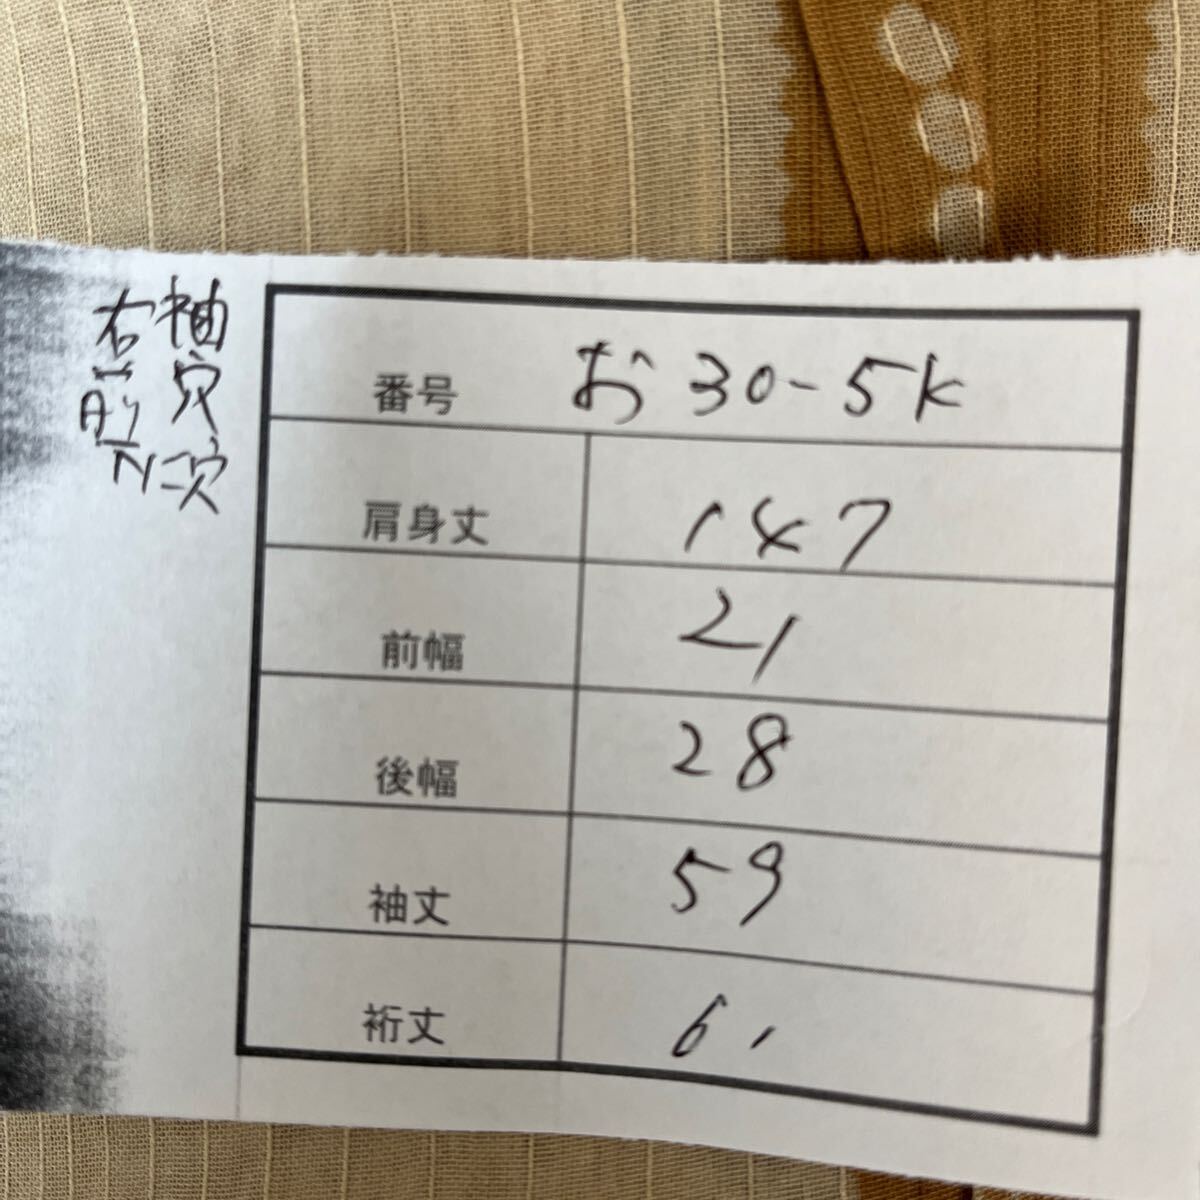 袖穴
右前
番号 お30-5K
肩身丈 147
前幅 21
後幅 28
袖丈 59
裄丈 61